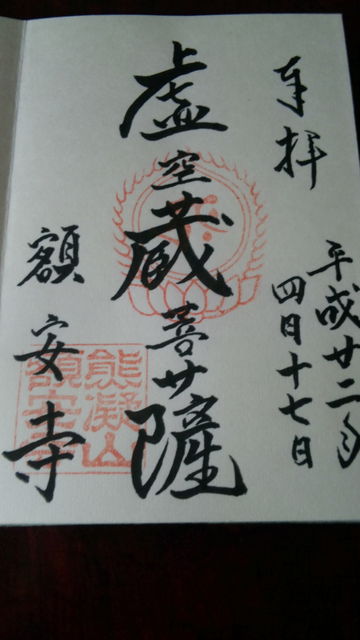 奉拝
平成廿二年
四月十七日
虚空蔵菩薩
額安寺
熊凝山
額安寺